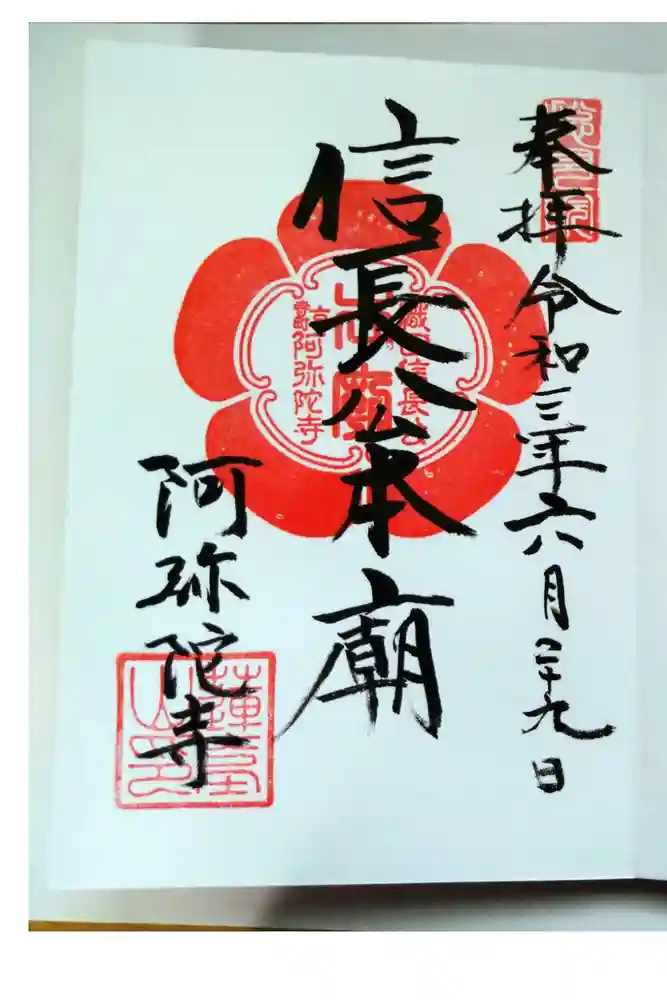 奉拝 令和三年六月二十九日
信長公本廟
織田信長公
本廟
京都
阿弥陀寺
阿弥陀寺